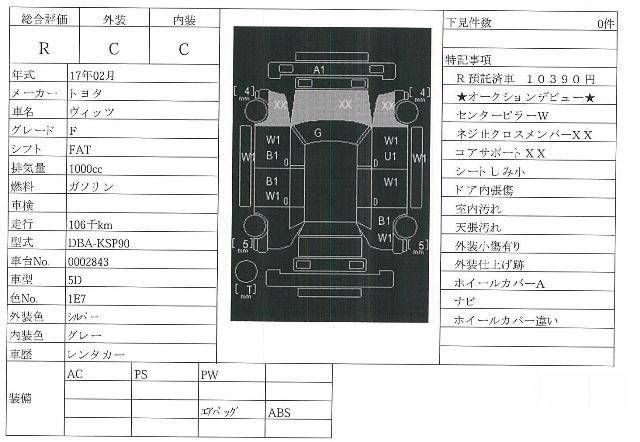 総合評価 外装 内装
R C C
年式 17年02月
メーカー トヨタ
車名 ヴィッツ
グレード F
シフト FAT
排気量 1000cc
燃料 ガソリン
車検
走行 106千km
型式 DBA-KSP90
車台No. 0002843
車型 5D
色No. 1E7
外装色 シルバー
内装色 グレー
車歴 レンタカー
装備 AC PS PW
エアバッグ ABS
A1
[4] mm XX XX XX [4] mm
G
W1 W1 W1 W1
B1 01 01 U1
B1 01 01 W1
W1
B1
W1
[5] mm [5] mm
[T] mm
下見件数 0件
特記事項
R預託済車 10390円
★オークションデビュー★
センターピラーW
ネジ止クロスメンバーXX
コアサポートXX
シートしみ小
ドア内張傷
室内汚れ
天張汚れ
外装小傷有り
外装仕上げ跡
ホイールカバーA
ナビ
ホイールカバー違い